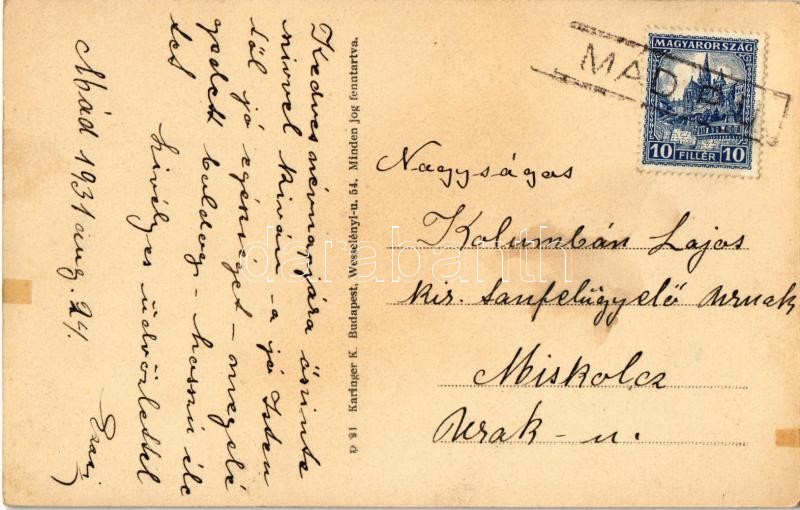 Kedves névnapjára őszinte
szivvel kiván - a jó Isten
től jó egészséget - megelé
gedett boldog - hosszú éle
tet
szivélyes üdvözlettel
Mád 1931 aug. 24.
P 81 Karinger K. Budapest, Wesselényi-u. 54. Minden jog fenntartva.
MAGYARORSZÁG
10 FILLÉR 10
MÁD
Nagyságos
Kolumbán Lajos
kir. tanfelügyelő Urnak
Miskolcz
Urak - u.
darabanth